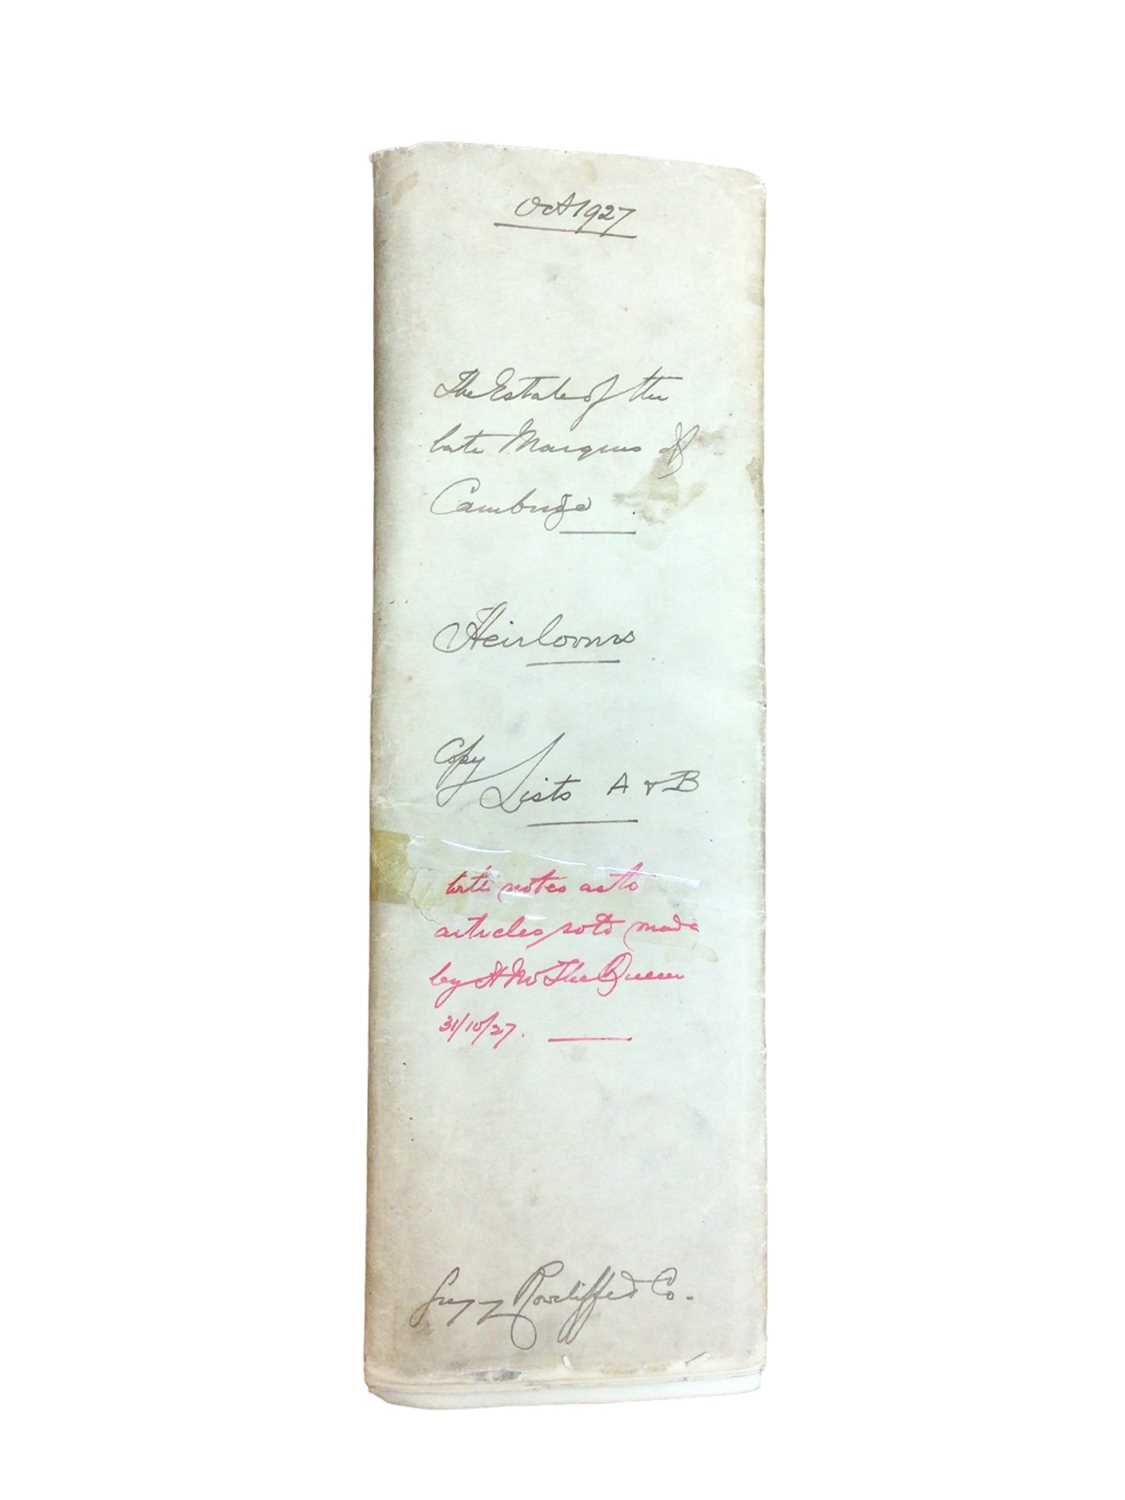 Oct 1927
The Estate of the
late Marquis of
Cambridge
Heirlooms
Copy
Lists A & B
with notes as to
articles
made
by HM The Queen
31/10/27.
Gregory Rowcliffe & Co.